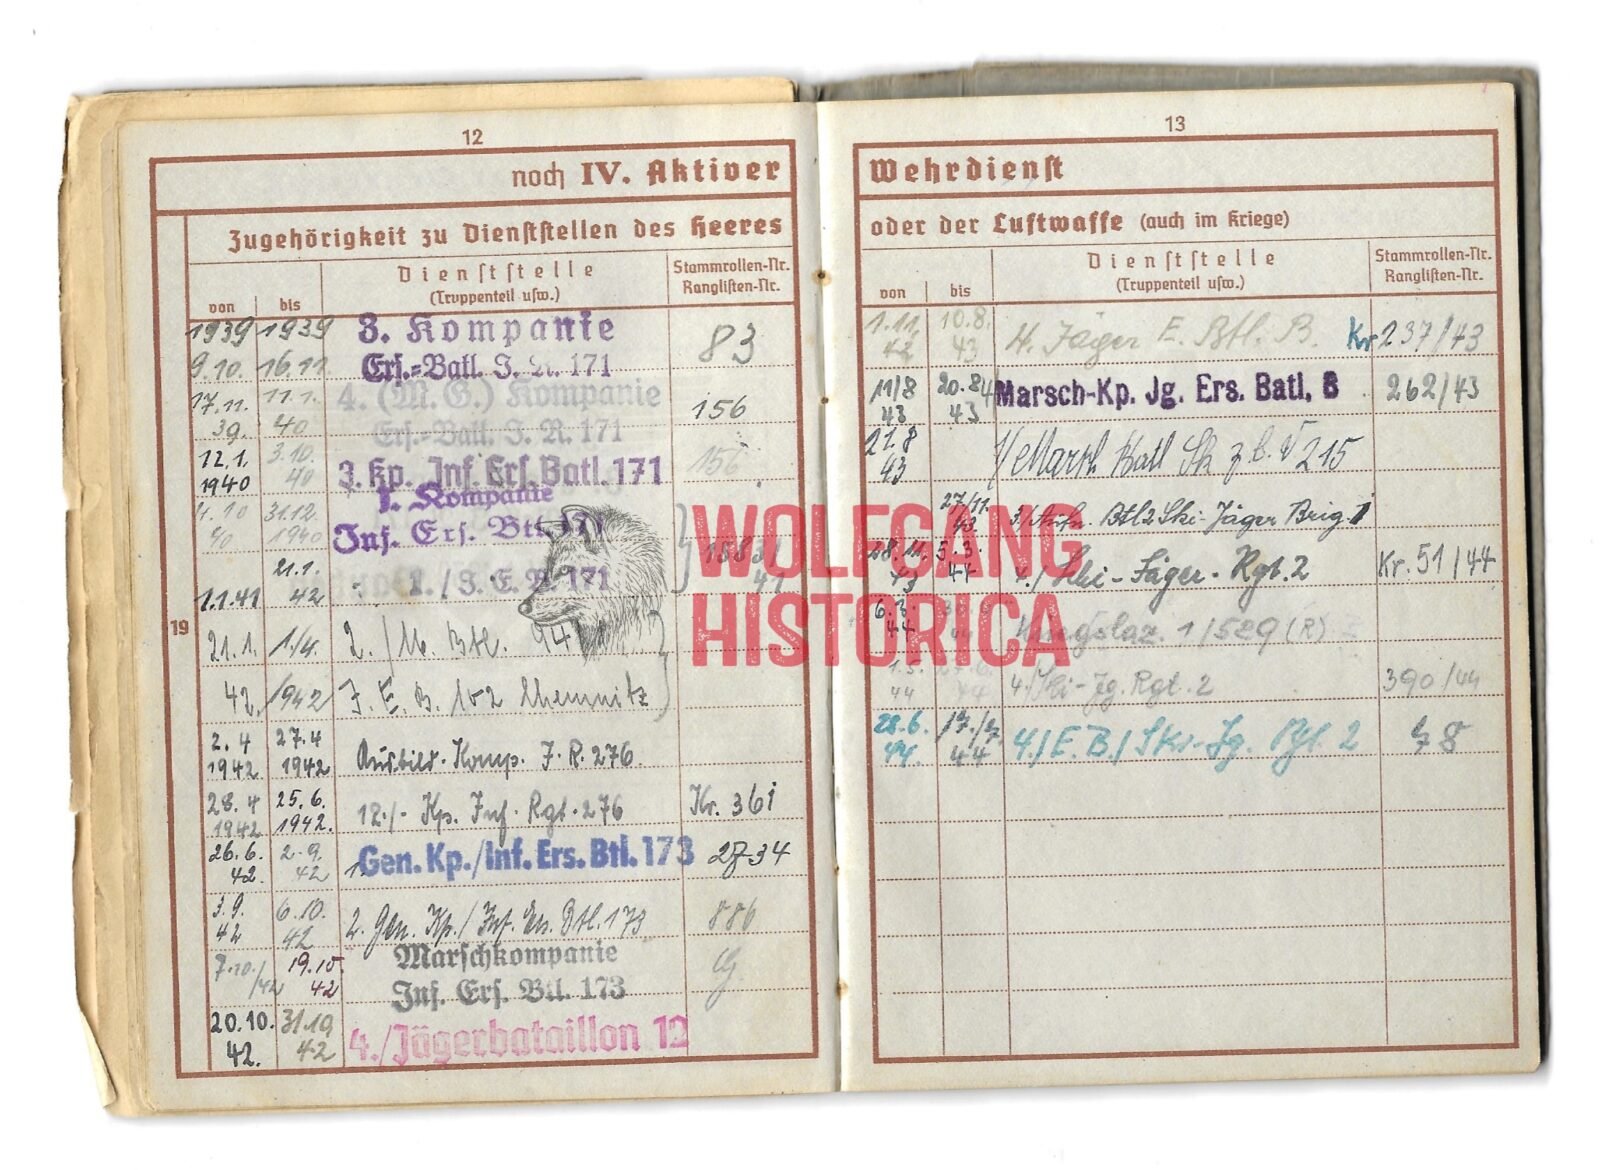 12
noch IV. Aktiver
Zugehörigkeit zu Dienststellen des Heeres
von
bis
Dienststelle
(Truppenteil usw.)
Stammrollen-Nr.
Ranglisten-Nr.
19
1939 1939 3. Kompanie 83
9.10. 16.11. Ers.-Batl. I. R. 171
17.11. 11.1. 4. (M. G.) Kompanie 156
39. 40 Ers.-Batl. I. R. 171
12.1. 3.10. 3. Kp. Inf. Ers. Batl. 171 156
1940 40
1. Kompanie
4.10 31.12. Inf. Ers. Btl. 171
40 1940
21.1. 1./I. E. B. 171
1.1.41 42
21.1. 1./4. 2./M. Btl.
42. 1942 J. E. B. 102 Chemnitz
2.4 27.4 Ausbild. Komp. J. R. 276
1942 1942
28.4 25.6. 12./- Kp. Inf. Rgt. 276 Kr. 361
1942 1942.
26.6. 2.9. 1. Gen. Kp./Inf. Ers. Btl. 173 2734
42. 42
3.9. 6.10. 2. Gen. Kp./Inf. Ers. Btl. 173 886
42 42
7.10./42 19.10. 42 Marschkompanie
Inf. Ers. Btl. 173
20.10. 31.10 4./Jägerbataillon 12
42. 42
13
Wehrdienst
oder der Luftwaffe (auch im Kriege)
von
bis
Dienststelle
(Truppenteil usw.)
Stammrollen-Nr.
Ranglisten-Nr.
1.11. 10.8. Jäger E. Btl. 8. Kr 237/43
42 43
11/8 20.8 Marsch-Kp. Jg. Ers. Batl. 8 262/43
43 43
21.8 1/Marsch Batl z.b.V 215
43
27/11. 3/ Btl 2 Ski-Jäger Brig 1
43
28.11. 5.3. /Ski-Jäger-Rgt. 2 Kr. 51/44
43 44
6.3. Kriegslaz. 1/529 (R)
44 44
1.5. 4./Ski-Jg. Rgt. 2 390/44
44 44
28.6. 4./E.B./Ski-Jg. Rgt. 2 48
44. 44
WOLFGANG
HISTORICA